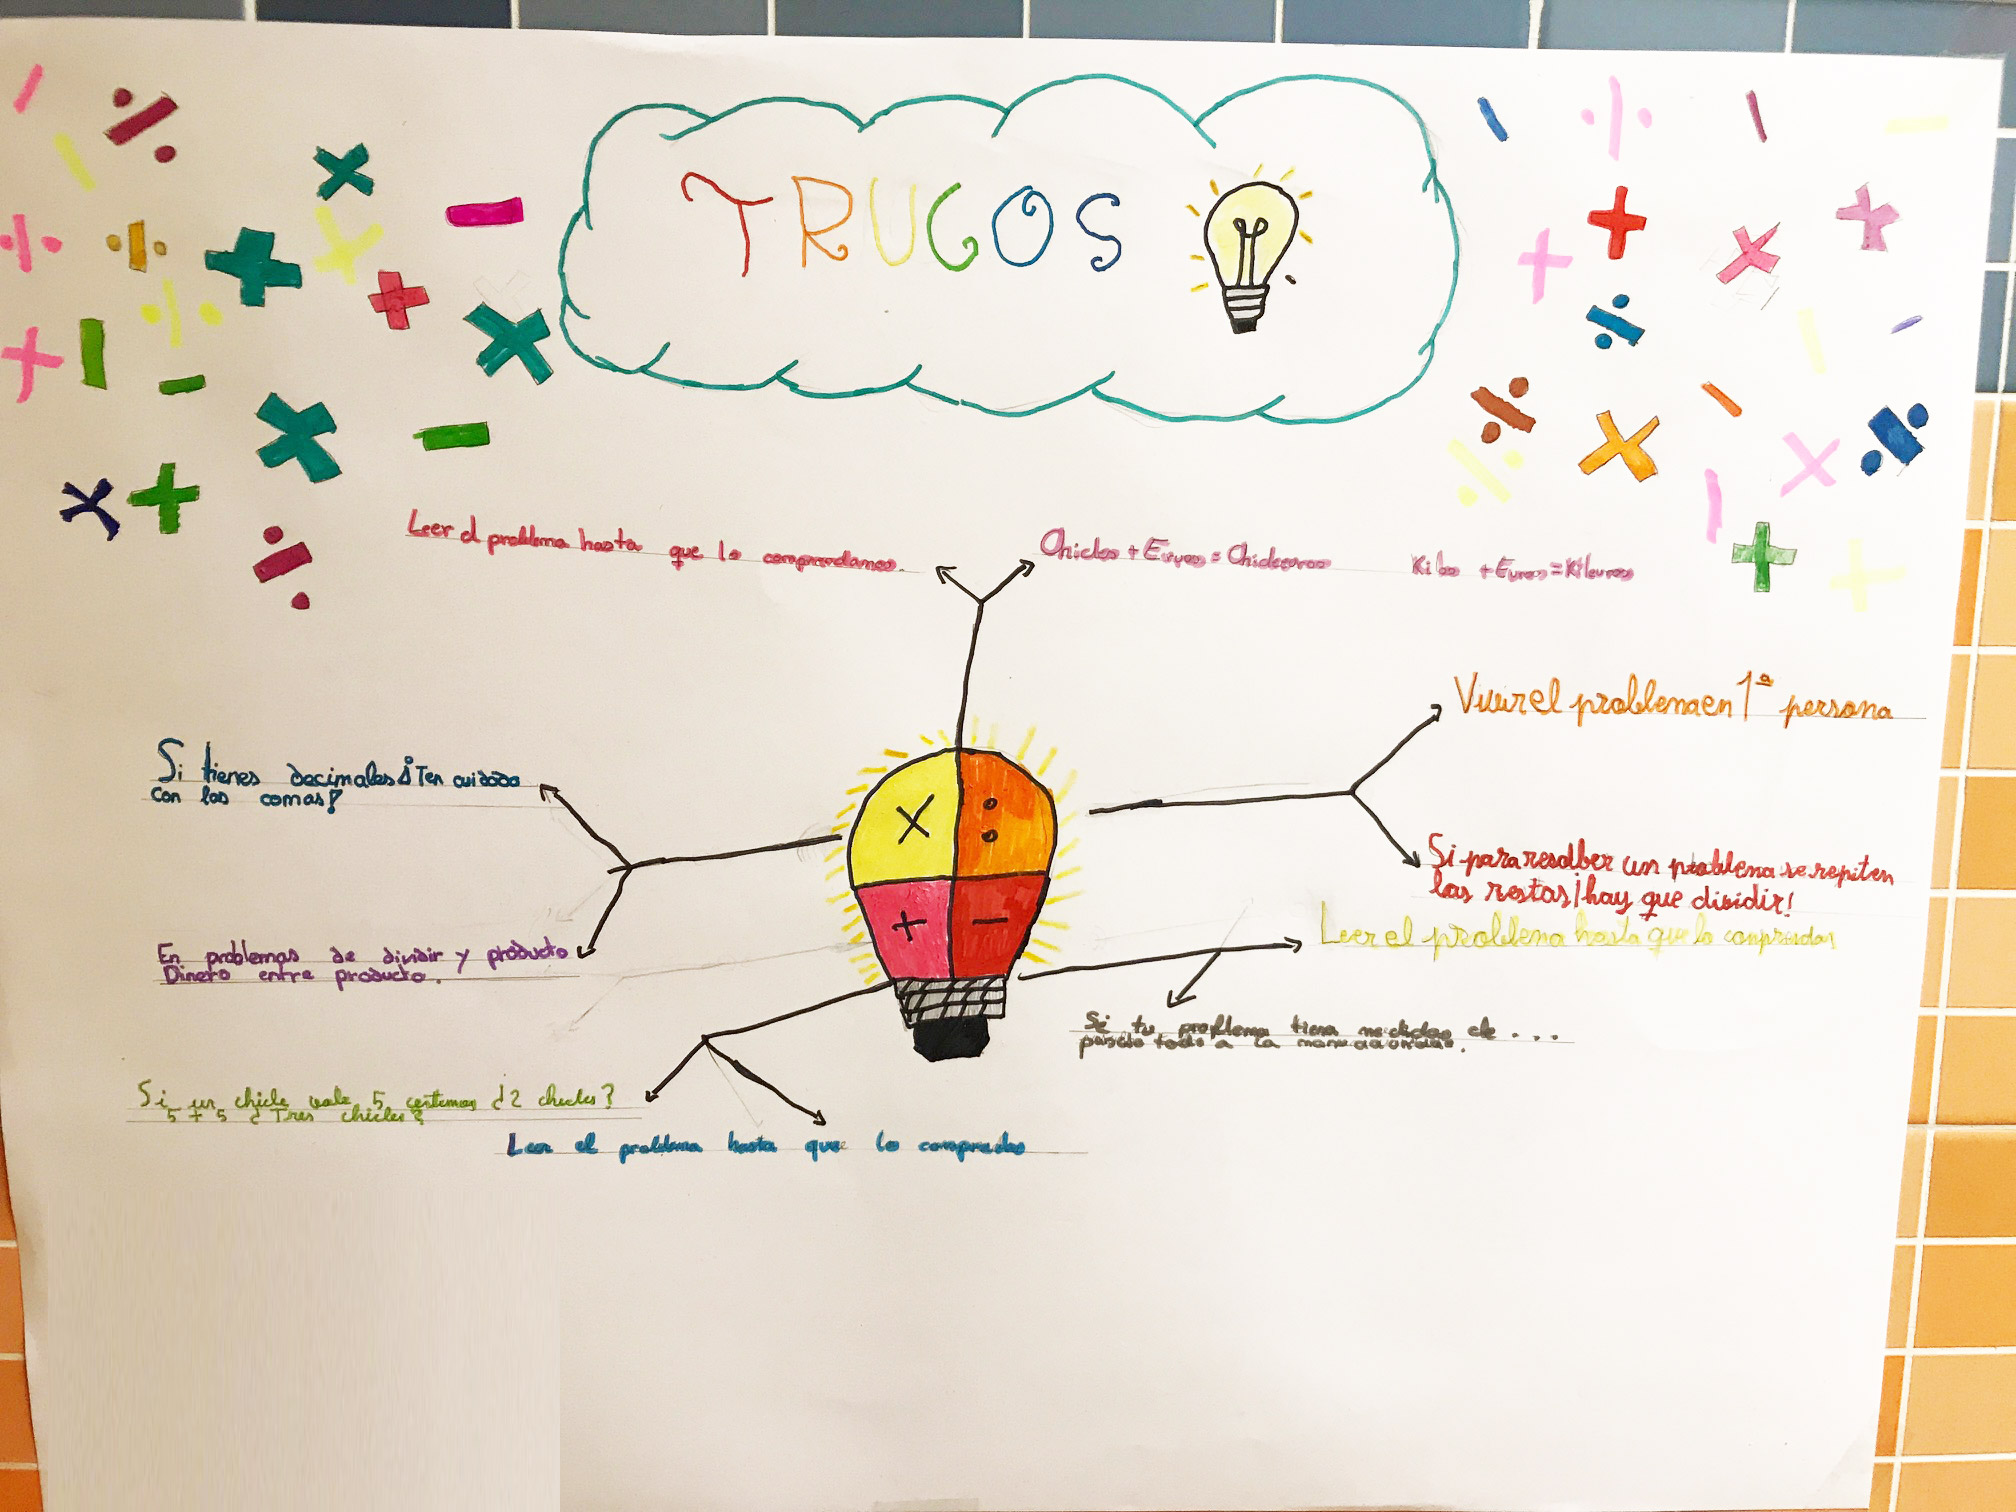 TRUCOS
Leer el problema hasta que lo comprendamos.
Chicles + Euros = Chicleuros Kilos + Euros = Kileuros
Vivir el problema en 1ª persona
Si tienes decimales ¡Ten cuidado
con las comas!
Si para resolber un problema se repiten
las restas ¡hay que dividir!
Leer el problema hasta que lo comprendas
En problemas de dividir y producto
Dinero entre producto.
Si tu problema tiene medidas de . . .
pásalo todo a la
Si un chicle vale 5 centimos ¿2 chicles?
5 + 5 ¿Tres chicles?
Leer el problema hasta que lo compredas